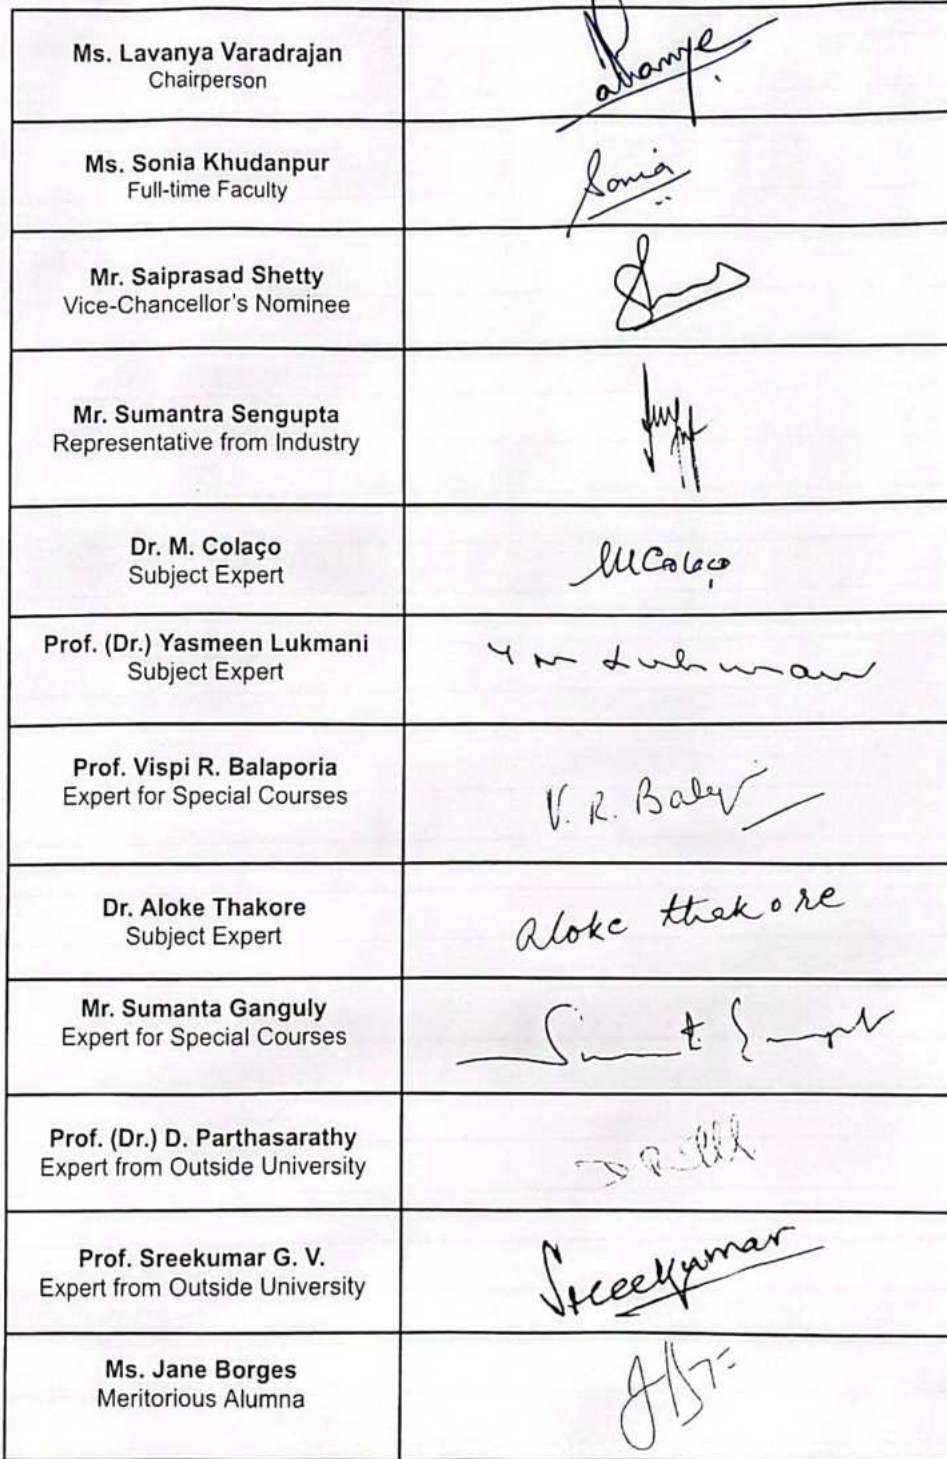 Ms. Lavanya Varadrajan
Chairperson
Ms. Sonia Khudanpur
Full-time Faculty
Sonia
Mr. Saiprasad Shetty
Vice-Chancellor's Nominee
Mr. Sumantra Sengupta
Representative from Industry
Dr. M. Colaço
Subject Expert
MColaço
Prof. (Dr.) Yasmeen Lukmani
Subject Expert
Prof. Vispi R. Balaporia
Expert for Special Courses
V. R.
Dr. Aloke Thakore
Subject Expert
Aloke thakore
Mr. Sumanta Ganguly
Expert for Special Courses
Prof. (Dr.) D. Parthasarathy
Expert from Outside University
Prof. Sreekumar G. V.
Expert from Outside University
Sreekumar
Ms. Jane Borges
Meritorious Alumna